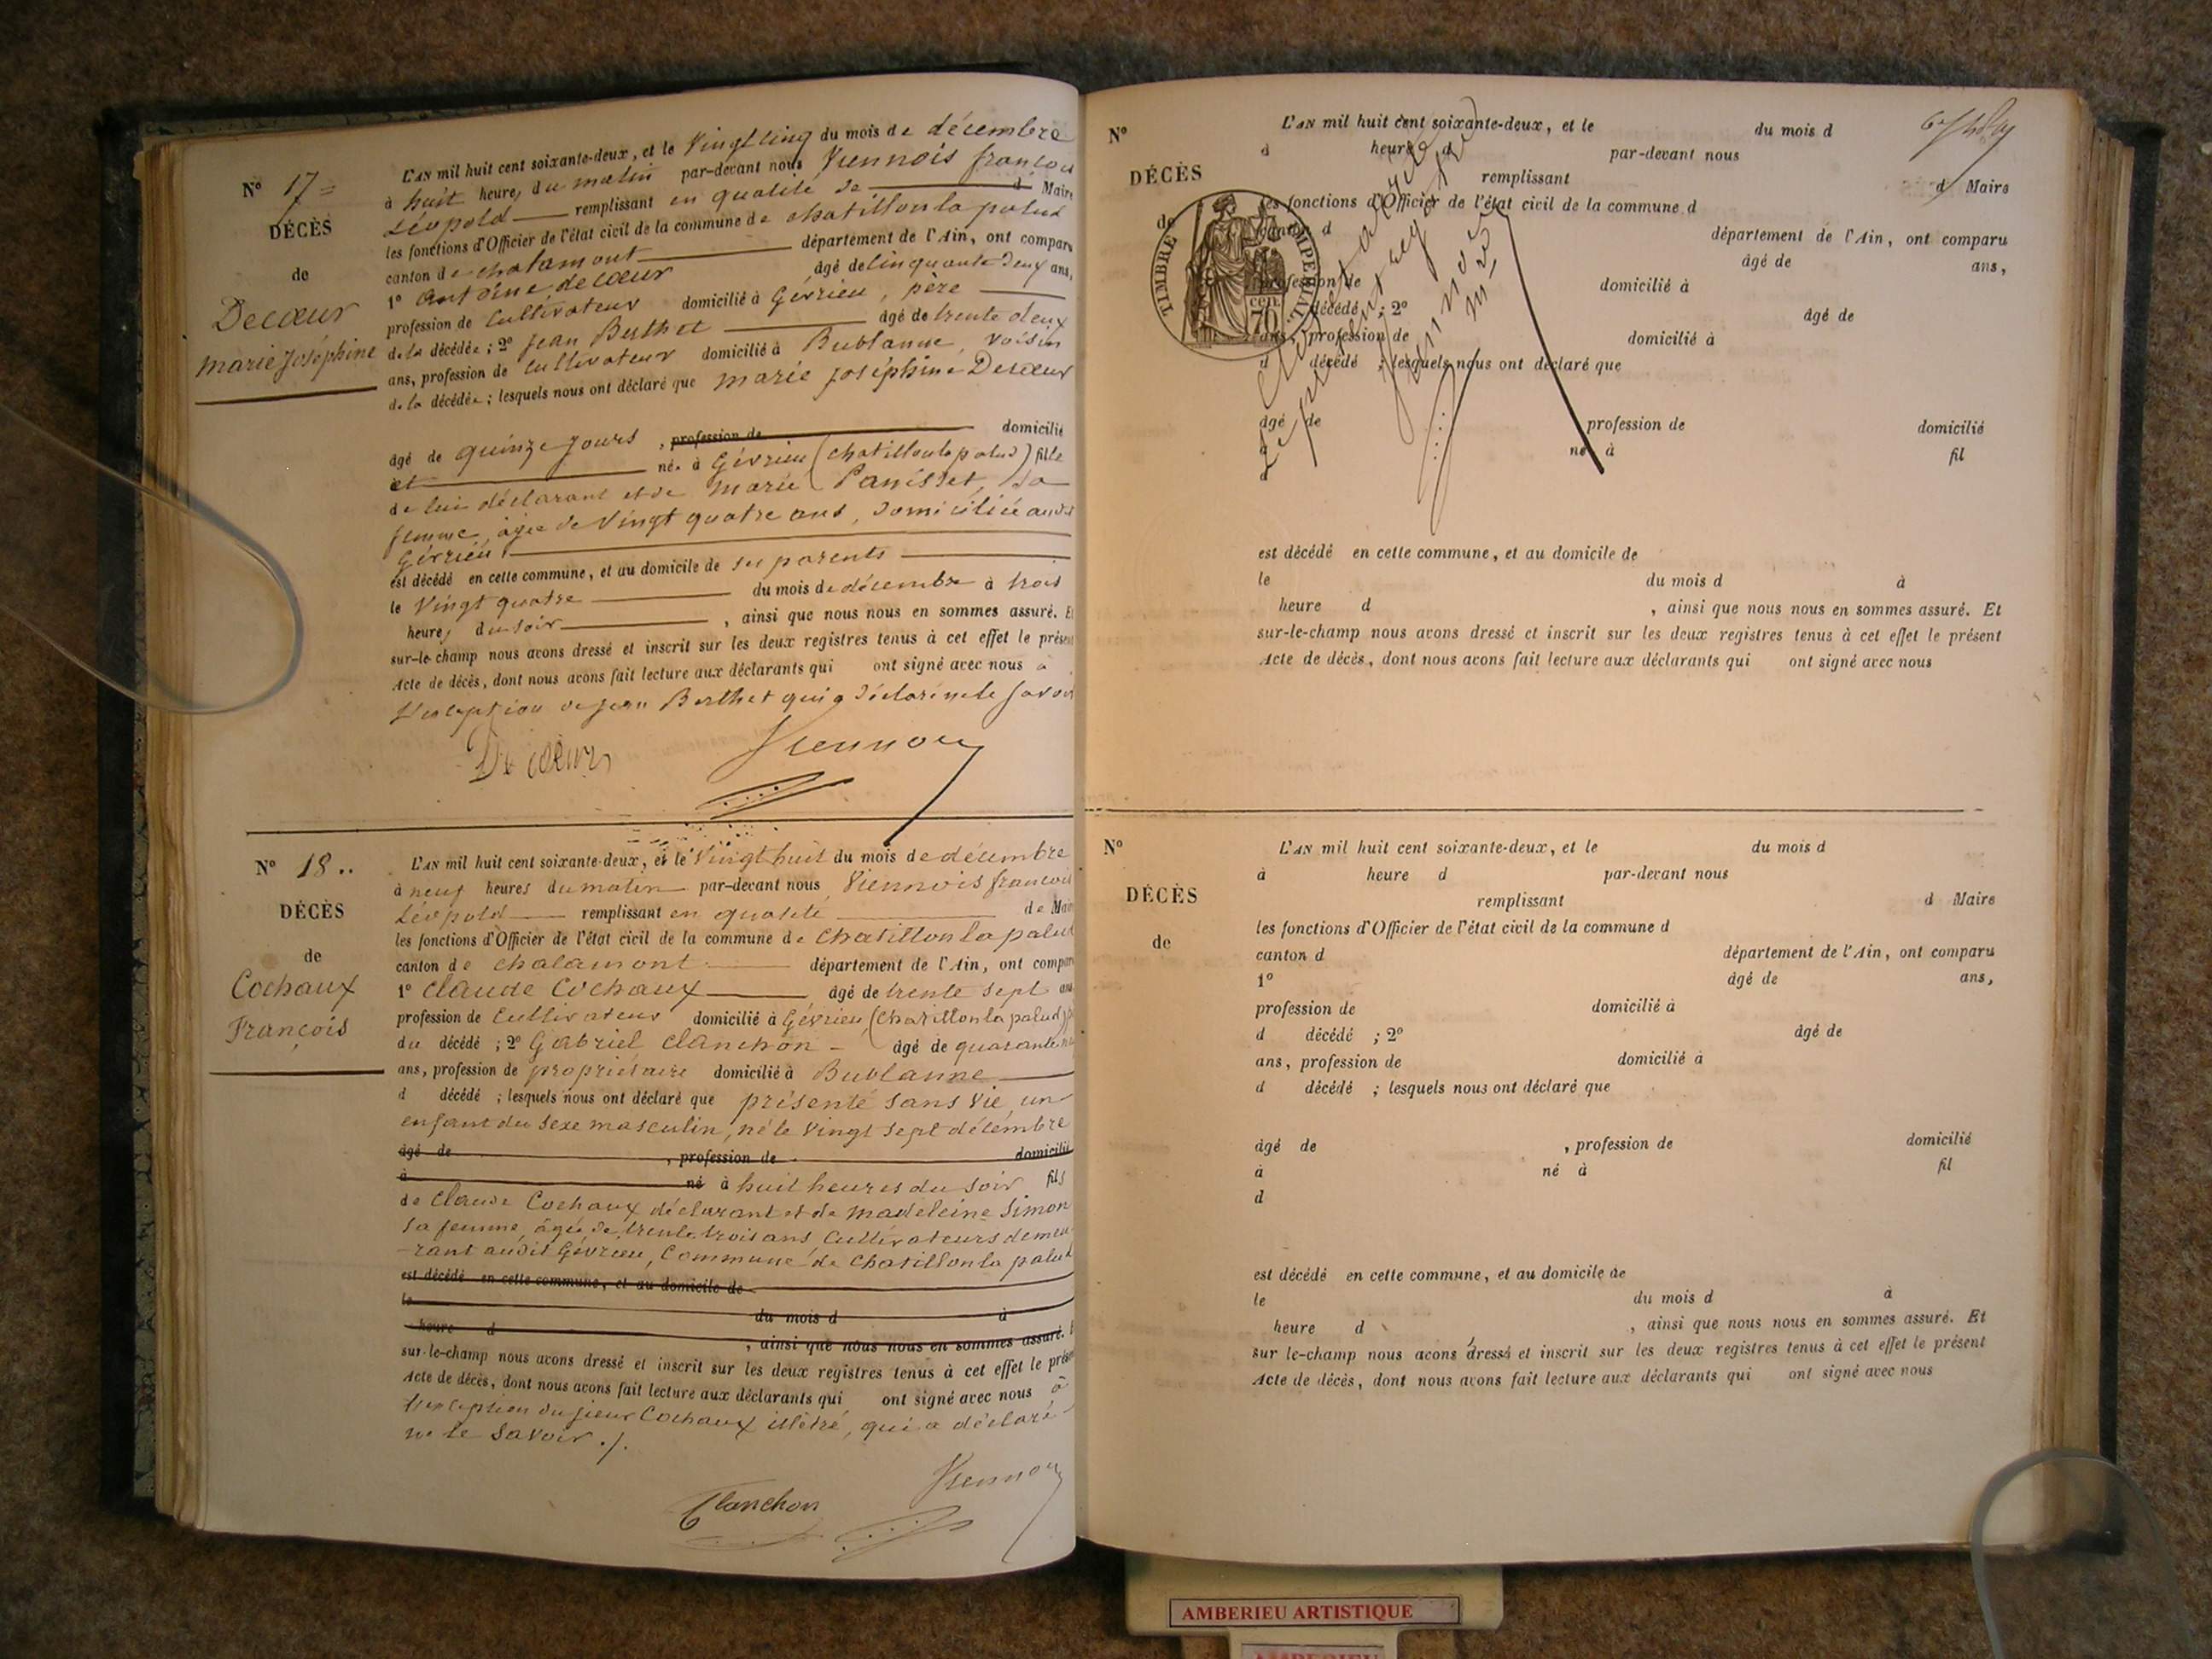 N° 17=
DÉCÈS
de
Decœur
marie joséphine
L'AN mil huit cent soixante-deux, et le Vingt cinq du mois de décembre
à huit heures du matin par-devant nous Viennois françois
Léopold remplissant en qualité de d Maire
les fonctions d'Officier de l'état civil de la commune de chatillon la palud
canton de chalamont département de l'Ain, ont comparu
1° Antoine decœur âgé de Cinquante deux ans,
profession de Cultivateur domicilié à Gévrieu, père
de la décédée ; 2° jean Berthet âgé de trente deux
ans, profession de Cultivateur domicilié à Bublanne, voisin
de la décédée ; lesquels nous ont déclaré que marie joséphine Decœur
âgé de quinze jours, profession de domicilié
et née à Gévrieu (chatillon la palud) fille
de lui déclarant et de marie Panisset, sa
femme, âgée de Vingt quatre ans, domiciliée audit
Gévrieu
est décédé en cette commune, et au domicile de ses parents
le Vingt quatre du mois de décembre à trois
heures du soir, ainsi que nous nous en sommes assuré. Et
sur-le-champ nous avons dressé et inscrit sur les deux registres tenus à cet effet le présent
Acte de décès, dont nous avons fait lecture aux déclarants qui ont signé avec nous à
l'exception de jean Berthet qui a déclaré ne le savoir
Decœur Viennois
N° 18..
DÉCÈS
de
Cochaux
François
L'AN mil huit cent soixante-deux, et le Vingt huit du mois de décembre
à neuf heures du matin par-devant nous Viennois françois
Léopold remplissant en qualité de Maire
les fonctions d'Officier de l'état civil de la commune de Chatillon la palud
canton de chalamont département de l'Ain, ont comparu
1° Claude Cochaux âgé de trente sept ans
profession de Cultivateur domicilié à Gévrieu (Chatillon la palud)
du décédé ; 2° Gabriel Clanchon âgé de quarante
ans, profession de propriétaire domicilié à Bublanne
d décédé ; lesquels nous ont déclaré que présenté sans vie, un
enfant du sexe masculin, né le Vingt sept décembre
âgé de , profession de domicilié
à né à huit heures du soir fils
de Claude Cochaux déclarant et de madeleine Simon
sa femme, âgée de trente trois ans Cultivateurs demeu
-rant audit Gévrieu, Commune de Chatillon la palud
est décédé en cette commune, et au domicile de
le du mois d à
heure d , ainsi que nous nous en sommes assuré. Et
sur-le-champ nous avons dressé et inscrit sur les deux registres tenus à cet effet le présent
Acte de décès, dont nous avons fait lecture aux déclarants qui ont signé avec nous à
l'exception du sieur Cochaux illétré, qui a déclaré
ne le savoir ./.
Clanchon Viennois
N°
DÉCÈS
de
TIMBRE IMPERIAL
70 cen.
L'AN mil huit cent soixante-deux, et le du mois d
à heure d par-devant nous
remplissant d Maire
les fonctions d'Officier de l'état civil de la commune d
canton d département de l'Ain, ont comparu
âgé de ans,
profession de domicilié à
d décédé ; 2° âgé de
ans, profession de domicilié à
d décédé ; lesquels nous ont déclaré que
âgé de profession de domicilié
à né à fil
d
Clos et arrêté
le présent registre
Viennois
est décédé en cette commune, et au domicile de
le du mois d à
heure d , ainsi que nous nous en sommes assuré. Et
sur-le-champ nous avons dressé et inscrit sur les deux registres tenus à cet effet le présent
Acte de décès, dont nous avons fait lecture aux déclarants qui ont signé avec nous
N°
DÉCÈS
de
L'AN mil huit cent soixante-deux, et le du mois d
à heure d par-devant nous
remplissant d Maire
les fonctions d'Officier de l'état civil de la commune d
canton d département de l'Ain, ont comparu
1° âgé de ans,
profession de domicilié à
d décédé ; 2° âgé de
ans, profession de domicilié à
d décédé ; lesquels nous ont déclaré que
âgé de , profession de domicilié
à né à fil
d
est décédé en cette commune, et au domicile de
le du mois d à
heure d , ainsi que nous nous en sommes assuré. Et
sur le-champ nous avons dressé et inscrit sur les deux registres tenus à cet effet le présent
Acte de décès, dont nous avons fait lecture aux déclarants qui ont signé avec nous
AMBERIEU ARTISTIQUE
AMBERIEU